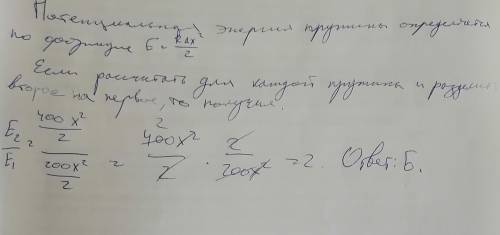 Потенциальная энергия пружины определяется
по формуле E = kΔx²/2
Если рассчитать для каждой пружины и разделить
второе на первое, то получим.
E₂/E₁ = (400 x²/2)/(200x²/2) = 400x²/2 · 2/200x² = 2. Ответ: Б.